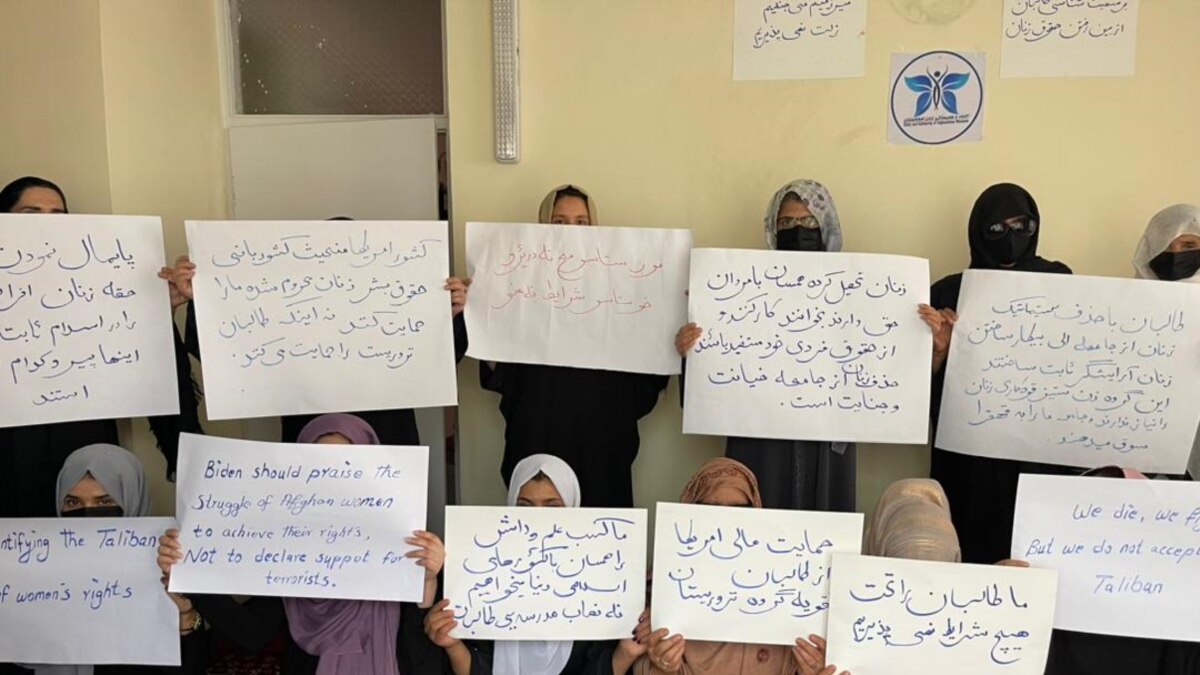 میرزمیم می جنگیم
زلت نمی پذیریم
برسمیت شناسی طالبان
از بین رفتن حقوق زنان
Unity and Solidarity of Afghanistan Women
پایمال نمودن
حقه زنان افرا
را در اسلام ثابت
اینها پیرو کدام
استند
کشور امریکا منحیث کشور بانی
حقوق بشر زنان محروم شده ما را
حمایت کنند نه اینکه طالبان
تروریست را حمایت می کند.
موږ ستاسو
ستاسو شرایط نه منو
زنان تحصیل کرده همسان با مردان
حق دارند بتوانند کار کنند و
از حقوق فردی خود مستفید باشند
حذف زنان از جامعه خیانت
و جنایت است.
طالبان با حذف سیستماتیک
زنان از جامعه الی بیکار ساختن
زنان آرایشگر ثابت ساختند
این گروه زن ستیز زنان
را ندارند و جامعه ما را به قهقرا
سوق میدهند.
ntifying the Taliban
of women's rights
Biden should praise the
struggle of Afghan women
to achieve their rights,
Not to declare suppot for
terrorists.
ما کسب علم و دانش
را همسان با کشورهای
اسلامی دنیا میخواهیم
نه نصاب مدرسه یی طالبان
حمایت مالی امریکا
از طالبان
تقویه گروه تروریستان
ما طالبان را تحت
هیچ شرایط نمی پذیریم
We die, we f
But we do not accep
Taliban